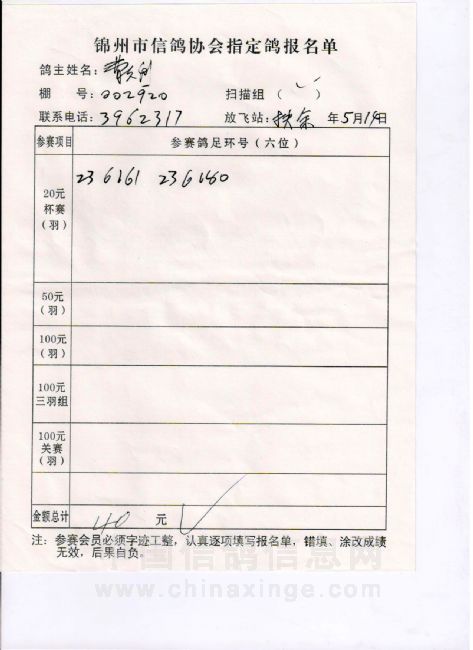 锦州市信鸽协会指定鸽报名单
鸽主姓名：
棚 号：002920 扫描组（ ）
联系电话：3962317 放飞站：扶余 年5月19日
参赛项目 参赛鸽足环号（六位）
20元
杯赛
（羽）
236161 236180
50元
（羽）
100元
（羽）
100元
三羽组
100元
关赛
（羽）
金额总计 40 元
注：参赛会员必须字迹工整，认真逐项填写报名单，错填、涂改成绩
无效，后果自负。
中国信鸽信息网
www.chinaxinge.com